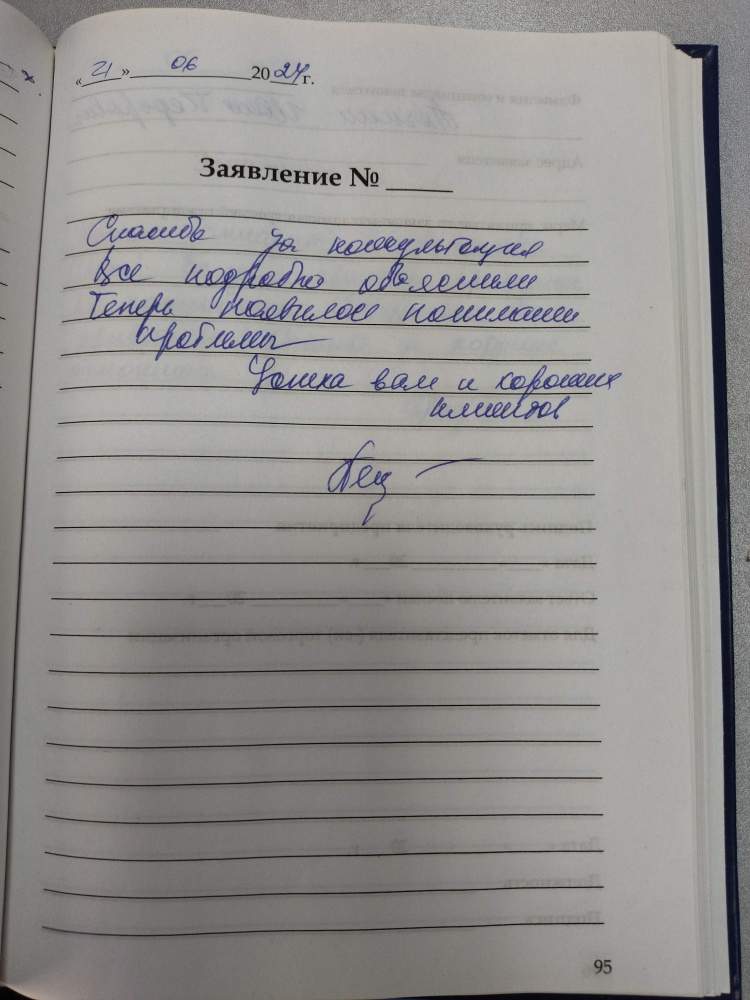 « 21 » 06 2024 г.
Заявление №
Спасибо за консультация
Все подробно объяснили
Теперь появилось понимании
проблемы
Удачи вам и хороших
клиентов
95